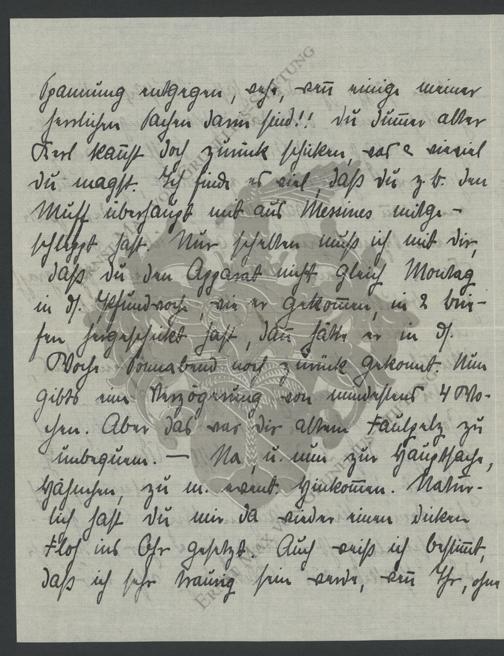 Spannung entgegen, wenn einige meiner
herrlichen Sachen darin sind!! Du dummer alter
Kerl kannst doch zurück schicken, was & wieviel
du magst. Ich finde es viel, daß du z.b. den
Muff überhaupt mit aus Messines mitge-
schleppt hast. Nur schelten muß ich mit dir,
daß du den Apparat nicht gleich Montag
in d. Pfundwoche, wie er gekommen, in 2 brie-
fen hergeschickt hast, dann hätte er in d.
Woche Sonnabend noch zurück gekonnt. Nun
gibts eine Verzögerung von mindestens 4 Wo-
chen. Aber das war dir altem Faulpelz zu
unbequem. — Na, u. nun zur Hauptsache,
Hähnchen, zu m. event. Hinkommen. Natür-
lich hast du mir da wieder einen dicken
Floh ins Ohr gesetzt. Auch weiß ich bestimmt,
daß ich sehr traurig sein werde, wenn Ihr, ohne